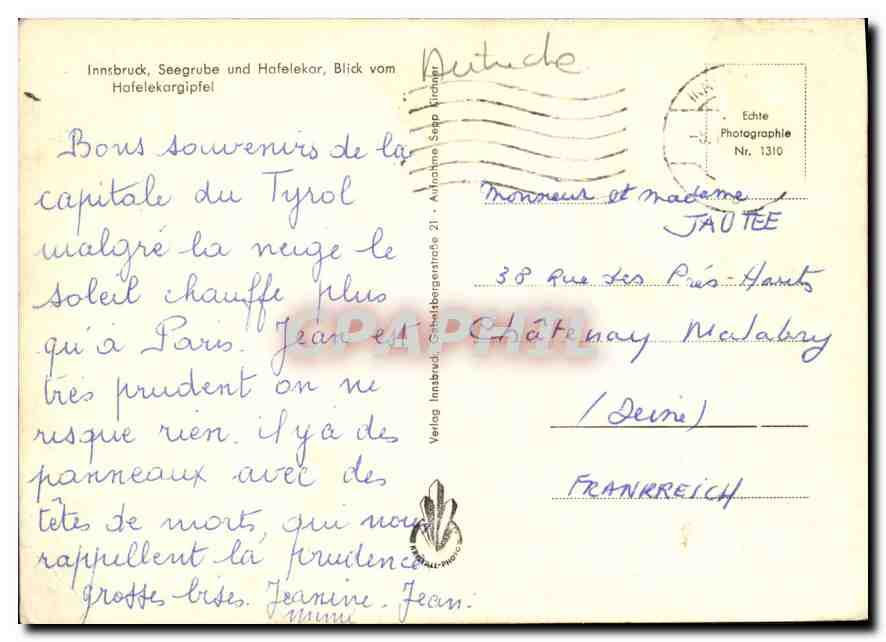 Innsbruck, Seegrube und Hafelekar, Blick vom
Hafelekargipfel
Bons souvenirs de la
capitale du Tyrol
malgré la neige le
soleil chauffe plus
qu'à Paris. Jean est
très prudent on ne
risque rien. il y a des
panneaux avec des
têtes de morts, qui nous
rappellent la prudence
grosses bises. Jeanine - Jean.
mimi
Verlag Innsbruck, Gabelsbergerstraße 21 · Aufnahme Sepp Kirchner
KRISTALL-PHOTO
Autriche
Echte
Photographie
Nr. 1310
Monsieur et madame
JAUTEE
38 Rue des Prés-Hauts
Châtenay Malabry
(Seine)
FRANKREICH
CPAPHIL